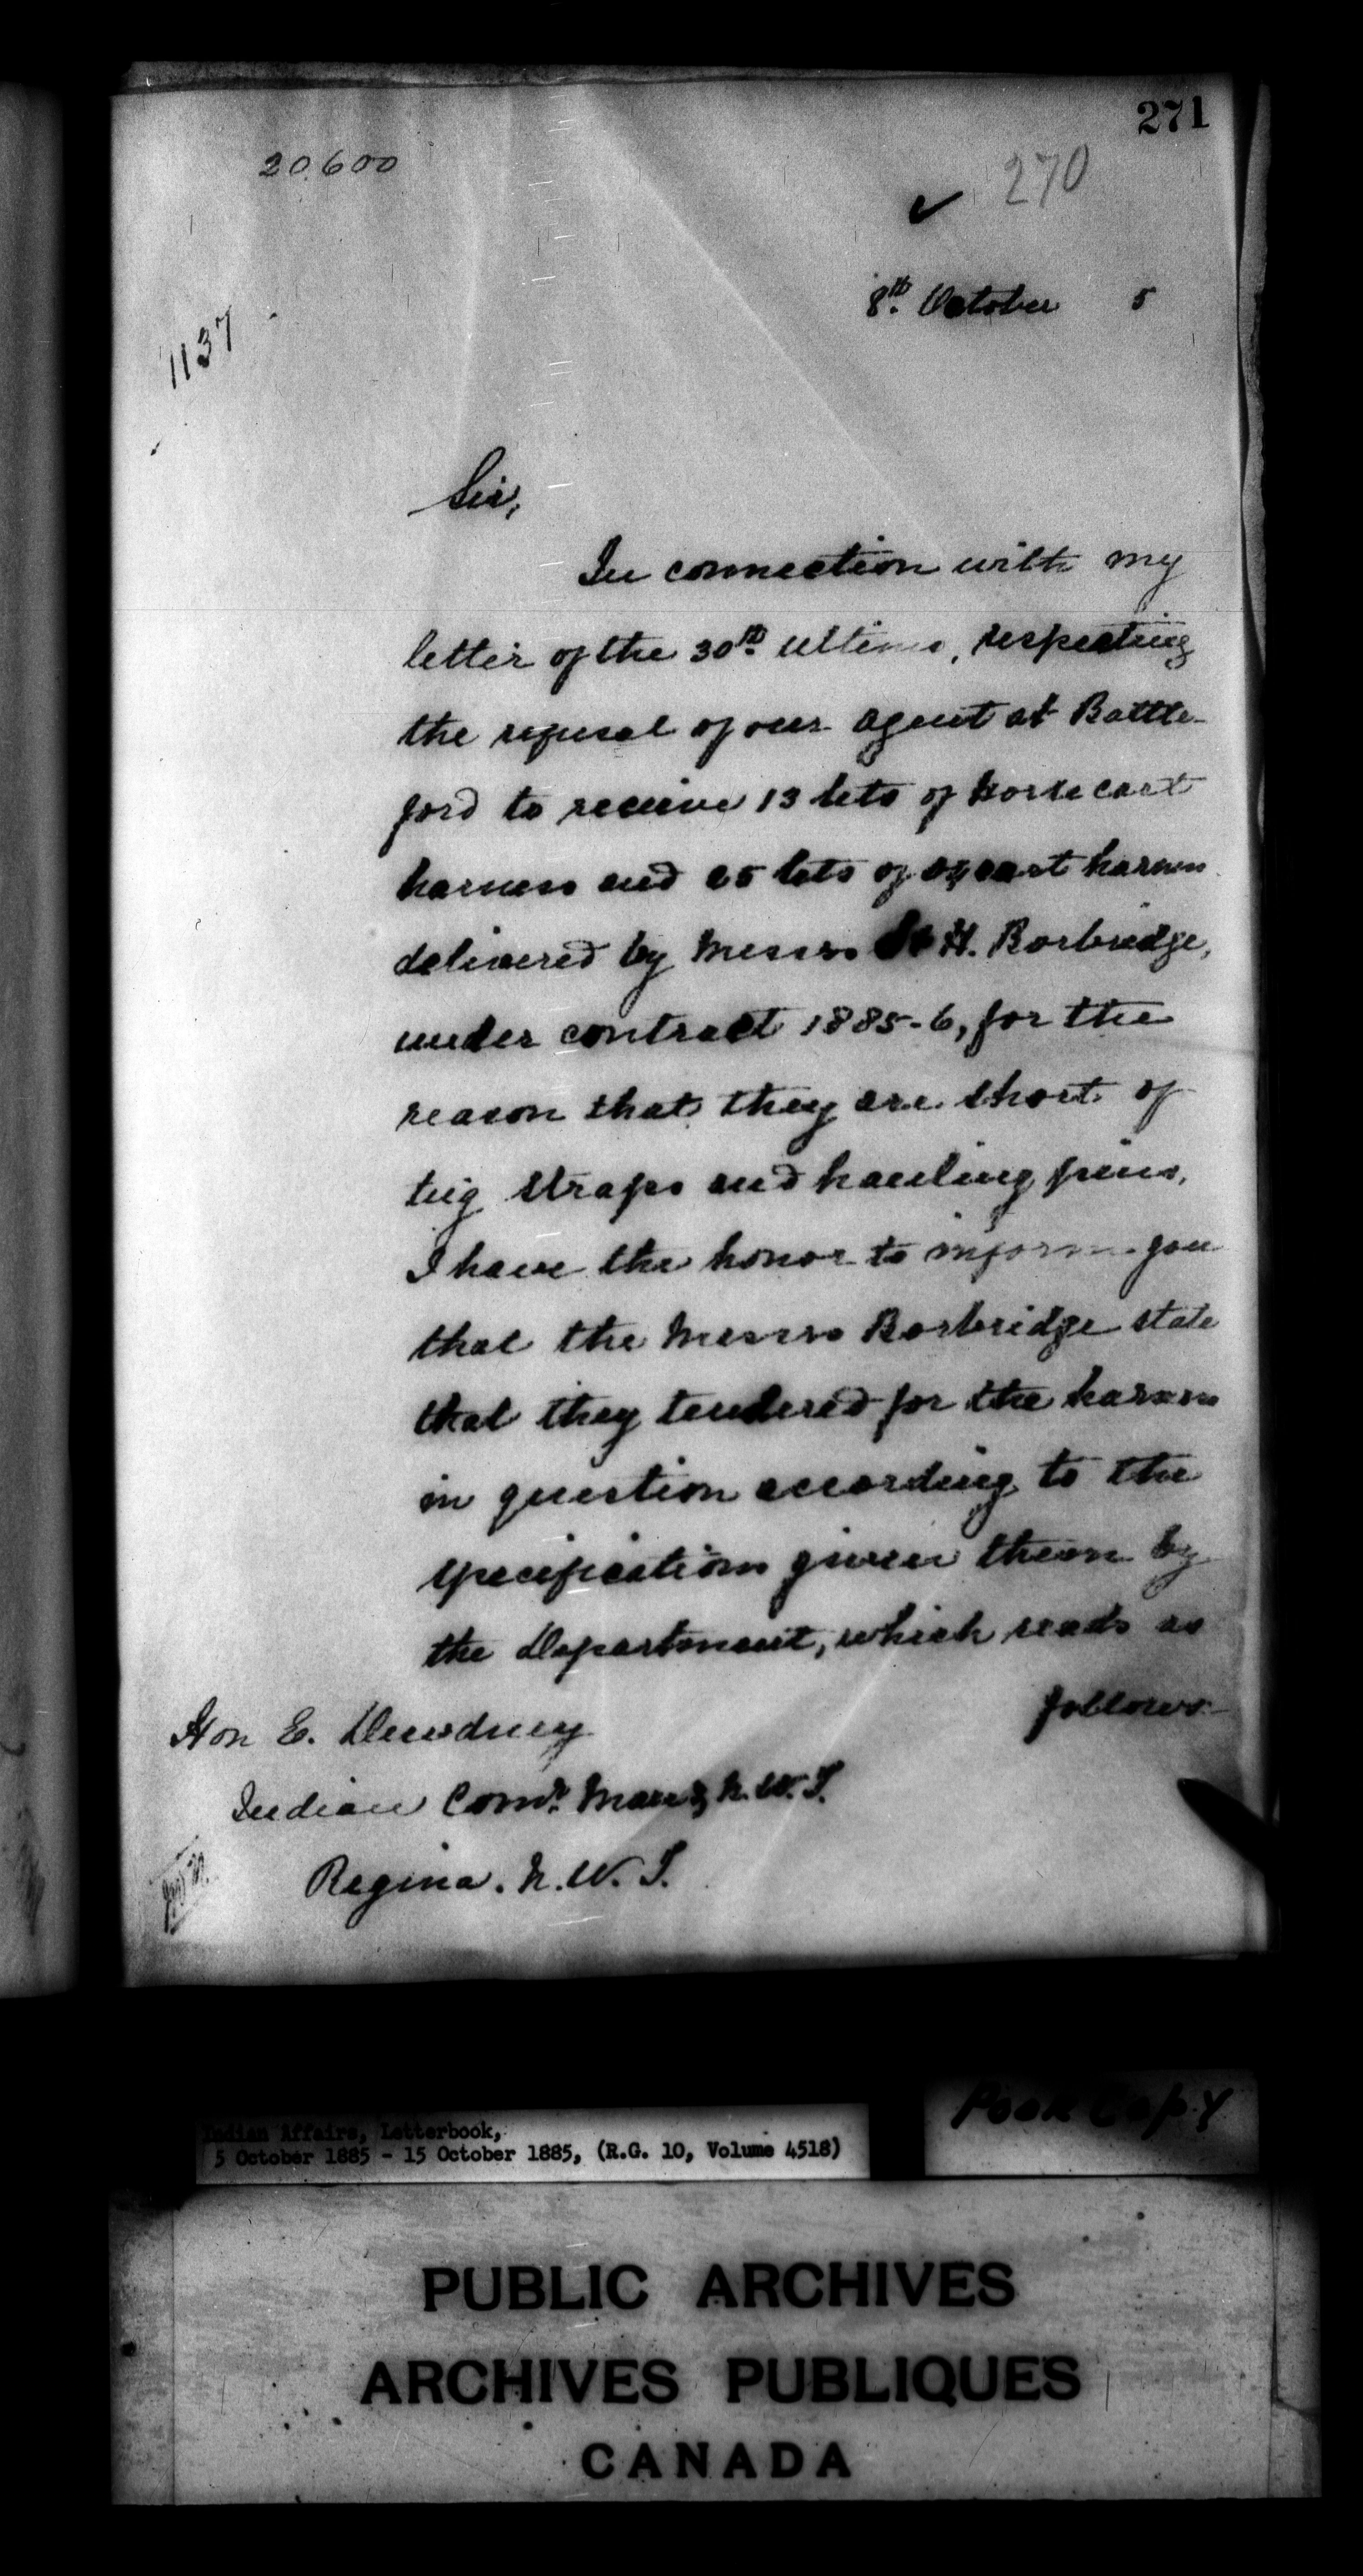 271
20.600
270
8th. October 5
1137
Sir,
In connection with my
letter of the 30th. ultimo, respecting
the refusal of our agent at Battle-
ford to receive 13 sets of horse cart
harness and 25 sets of ox cart harness
delivered by Messrs H. Borbridge,
under contract 1885-6, for the
reason that they are short of
tug straps and hauling pins,
I have the honor to inform you
that the Messrs Borbridge state
that they tendered for the harness
in question according to the
specifications given them by
the Department, which reads as
follows
Hon E. Dewdney
Indian Comr. Man & N.W.T.
Regina. N.W.T.
Poor Copy
Indian Affairs, Letterbook,
5 October 1885 - 15 October 1885, (R.G. 10, Volume 4518)
PUBLIC ARCHIVES
ARCHIVES PUBLIQUES
CANADA